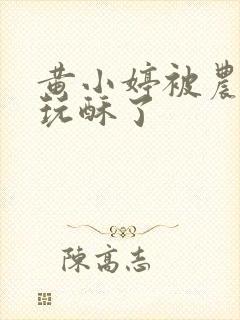 黄小婷被農
玩酥了
陳高志